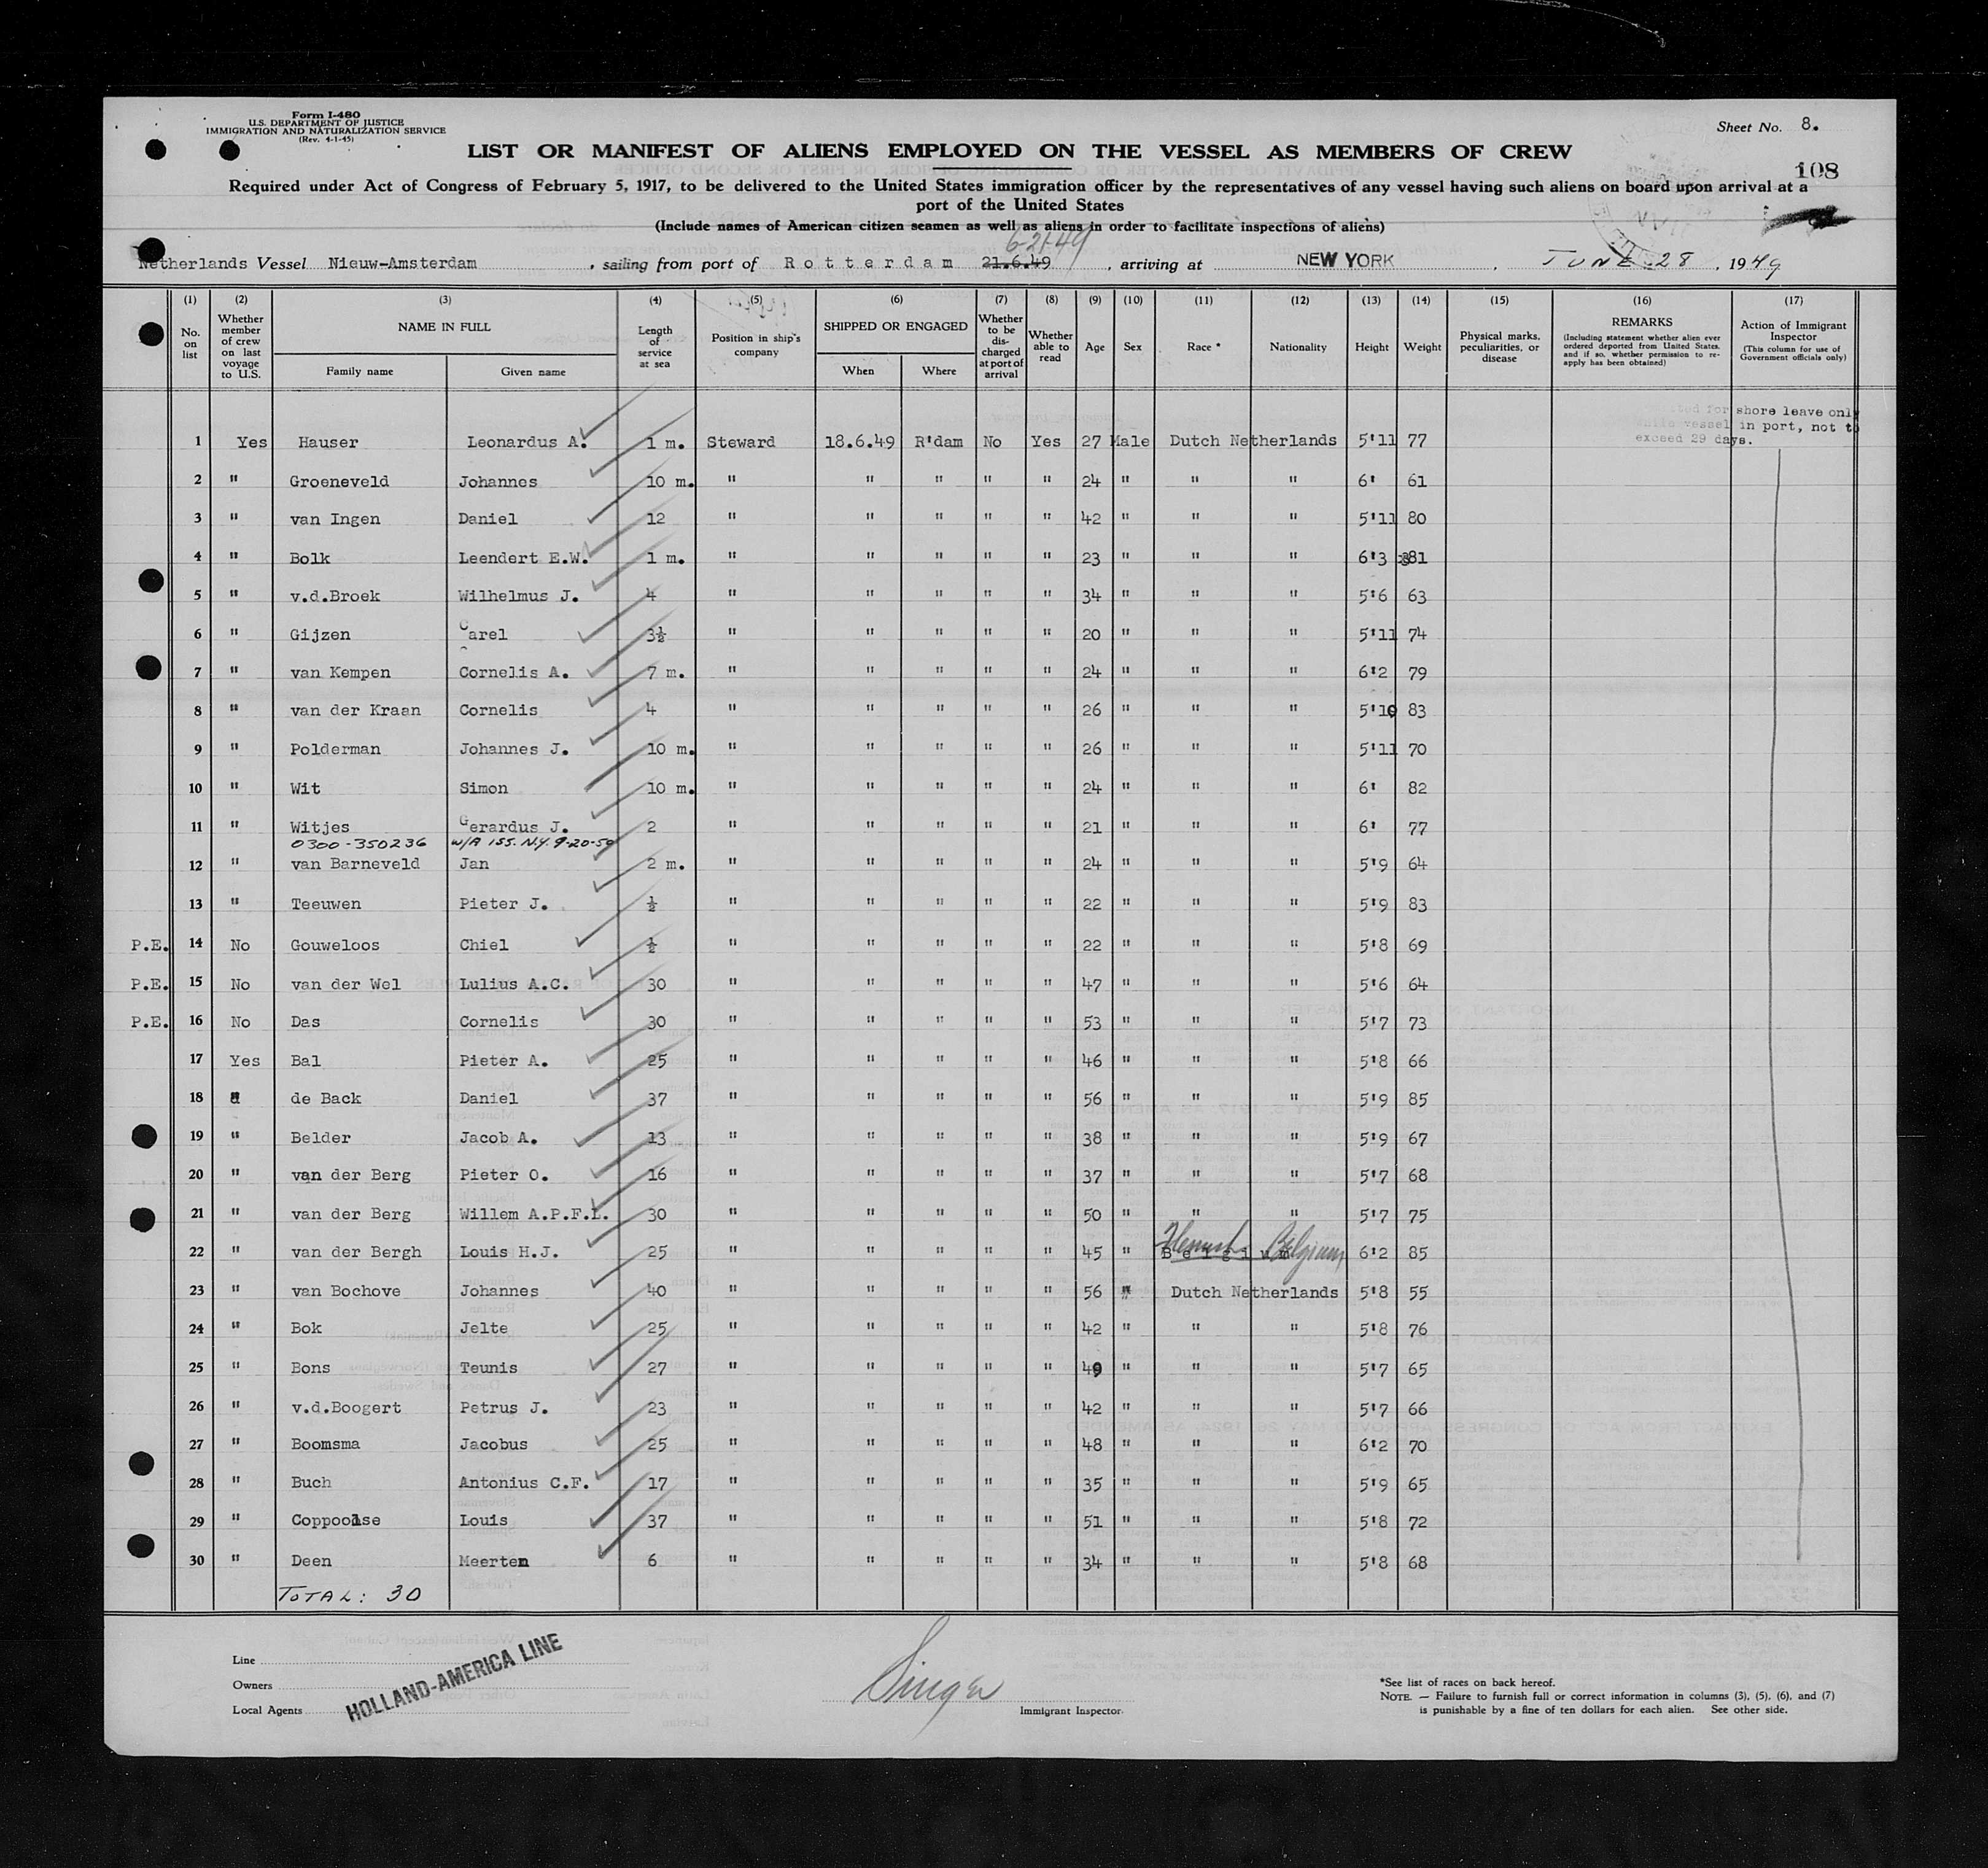 Form I-480
U.S. DEPARTMENT OF JUSTICE
IMMIGRATION AND NATURALIZATION SERVICE
(Rev. 4-1-45)
Sheet No. 8.
LIST OR MANIFEST OF ALIENS EMPLOYED ON THE VESSEL AS MEMBERS OF CREW
108
Required under Act of Congress of February 5, 1917, to be delivered to the United States immigration officer by the representatives of any vessel having such aliens on board upon arrival at a
port of the United States
(Include names of American citizen seamen as well as aliens in order to facilitate inspections of aliens)
6-21-49
Netherlands Vessel Nieuw-Amsterdam, sailing from port of Rotterdam 21.6.49, arriving at NEW YORK, JUNE 28, 1949
(1) No. on list (2) Whether member of crew on last voyage to U.S. (3) NAME IN FULL Family name Given name (4) Length of service at sea (5) Position in ship's company (6) SHIPPED OR ENGAGED When Where (7) Whether to be discharged at port of arrival (8) Whether able to read (9) Age (10) Sex (11) Race * (12) Nationality (13) Height (14) Weight (15) Physical marks, peculiarities, or disease (16) REMARKS (Including statement whether alien ever ordered deported from United States, and if so, whether permission to re-apply has been obtained) (17) Action of Immigrant Inspector (This column for use of Government officials only)
for shore leave only
vessel in port, not to
exceed 29 days.
1 Yes Hauser Leonardus A. 1 m. Steward 18.6.49 R'dam No Yes 27 Male Dutch Netherlands 5'11 77
2 " Groeneveld Johannes 10 m. " " " " " 24 " " " 6' 61
3 " van Ingen Daniel 12 " " " " " 42 " " " 5'11 80
4 " Bolk Leendert E.W. 1 m. " " " " " 23 " " " 6'3 81
5 " v.d.Broek Wilhelmus J. 4 " " " " " 34 " " " 5'6 63
6 " Gijzen Carel 3½ " " " " " 20 " " " 5'11 74
7 " van Kempen Cornelis A. 7 m. " " " " " 24 " " " 6'2 79
8 " van der Kraan Cornelis 4 " " " " " 26 " " " 5'10 83
9 " Polderman Johannes J. 10 m. " " " " " 26 " " " 5'11 70
10 " Wit Simon 10 m. " " " " " 24 " " " 6' 82
11 " Witjes Gerardus J. 2 " " " " " 21 " " " 6' 77
0300-350236 W/A 155. N.Y. 9-20-50
12 " van Barneveld Jan 2 m. " " " " " 24 " " " 5'9 64
13 " Teeuwen Pieter J. ½ " " " " " 22 " " " 5'9 83
P.E. 14 No Gouweloos Chiel ½ " " " " " 22 " " " 5'8 69
P.E. 15 No van der Wel Lulius A.C. 30 " " " " " 47 " " " 5'6 64
P.E. 16 No Das Cornelis 30 " " " " " 53 " " " 5'7 73
17 Yes Bal Pieter A. 25 " " " " " 46 " " " 5'8 66
18 " de Back Daniel 37 " " " " " 56 " " " 5'9 85
19 " Belder Jacob A. 13 " " " " " 38 " " " 5'9 67
20 " van der Berg Pieter O. 16 " " " " " 37 " " " 5'7 68
21 " van der Berg Willem A.P.F.L. 30 " " " " " 50 " " " 5'7 75
22 " van der Bergh Louis H.J. 25 " " " " " 45 " Belgium Flemish Belgium 6'2 85
23 " van Bochove Johannes 40 " " " " " 56 " Dutch Netherlands 5'8 55
24 " Bok Jelte 25 " " " " " 42 " " " 5'8 76
25 " Bons Teunis 27 " " " " " 49 " " " 5'7 65
26 " v.d.Boogert Petrus J. 23 " " " " " 42 " " " 5'7 66
27 " Boomsma Jacobus 25 " " " " " 48 " " " 6'2 70
28 " Buch Antonius C.F. 17 " " " " " 35 " " " 5'9 65
29 " Coppoolse Louis 37 " " " " " 51 " " " 5'8 72
30 " Deen Meerten 6 " " " " " 34 " " " 5'8 68
TOTAL: 30
Line
Owners
Local Agents
HOLLAND-AMERICA LINE
Singer
Immigrant Inspector.
*See list of races on back hereof.
NOTE. — Failure to furnish full or correct information in columns (3), (5), (6), and (7)
is punishable by a fine of ten dollars for each alien. See other side.